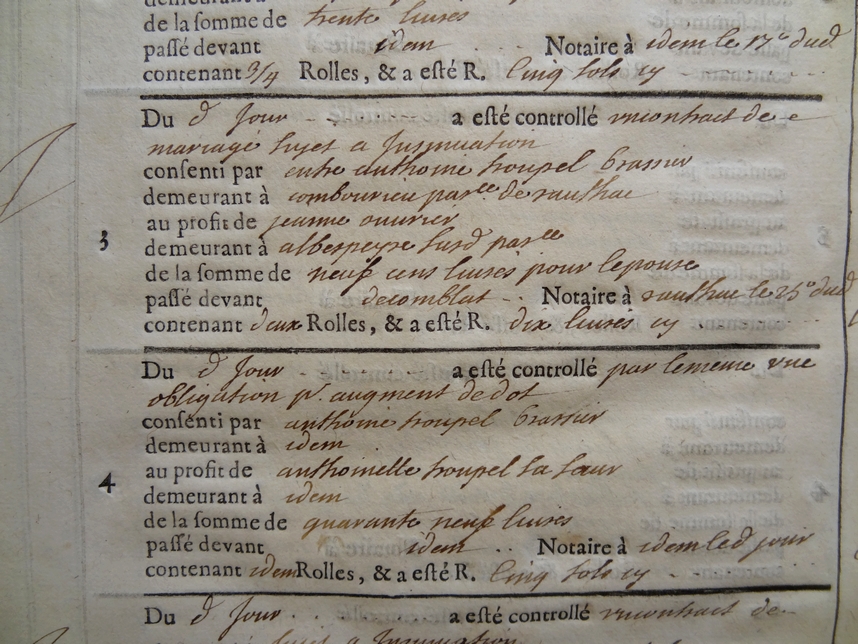 demeurant à
de la somme de trente liures
passé devant idem Notaire à idem le 17e dud
contenant 3/4 Rolles, & a esté R. cinq sols cy
Du d Jour a esté controllé vn contract de
mariage sujet a Insinuation
consenti par entre anthoine troupel brassier
demeurant à combourieu parce de raulhac
au profit de jeanne ouurier
3
demeurant à albespeyre susd parce
de la somme de neuf cens liures pour lepouse
passé devant decomblat Notaire à raulhac le 25e dud
contenant deux Rolles, & a esté R. dix liures cy
Du d Jour a esté controllé par lememe vne
obligation pr augment de dot
consenti par anthoine troupel brassier
demeurant à idem
au profit de anthoinette troupel sa sœur
4
demeurant à idem
de la somme de quarante neuf liures
passé devant idem Notaire à idem led jour
contenant idem Rolles, & a esté R. cinq sols cy
Du d Jour a esté controllé vn contract de
sujet a Insinuation